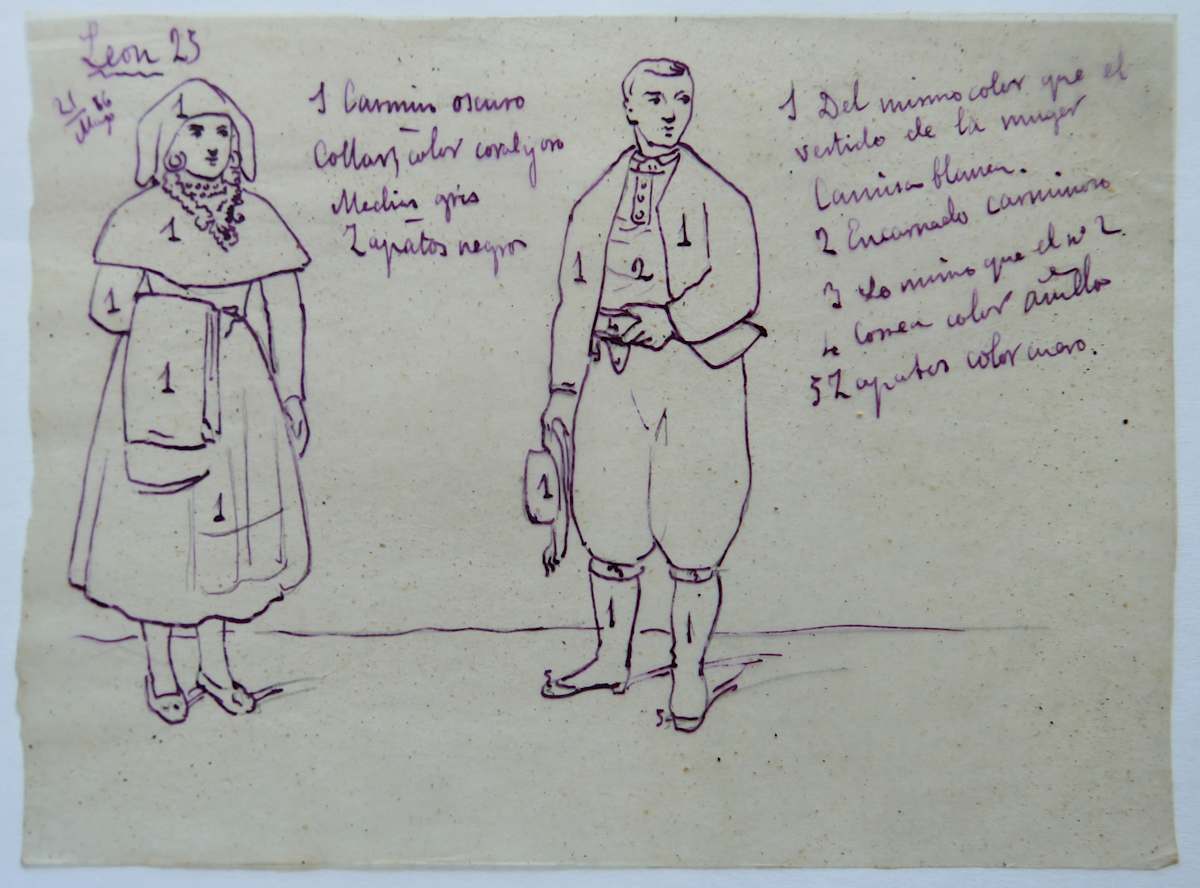 Leon 25
21
86
Mayo
1 Carmin oscuro
Collar, color coral y oro
Medias gris
Zapatos negros
1 Del mismo color que el
vestido de la muger
Camisa blanca.
2 Encarnado carminoso
3 Lo mismo que el nº 2.
4 Correa color
5 Zapatos color cuero.
1
1
1
1
1
1
1
2
4
1
3
3
1
1
5
5